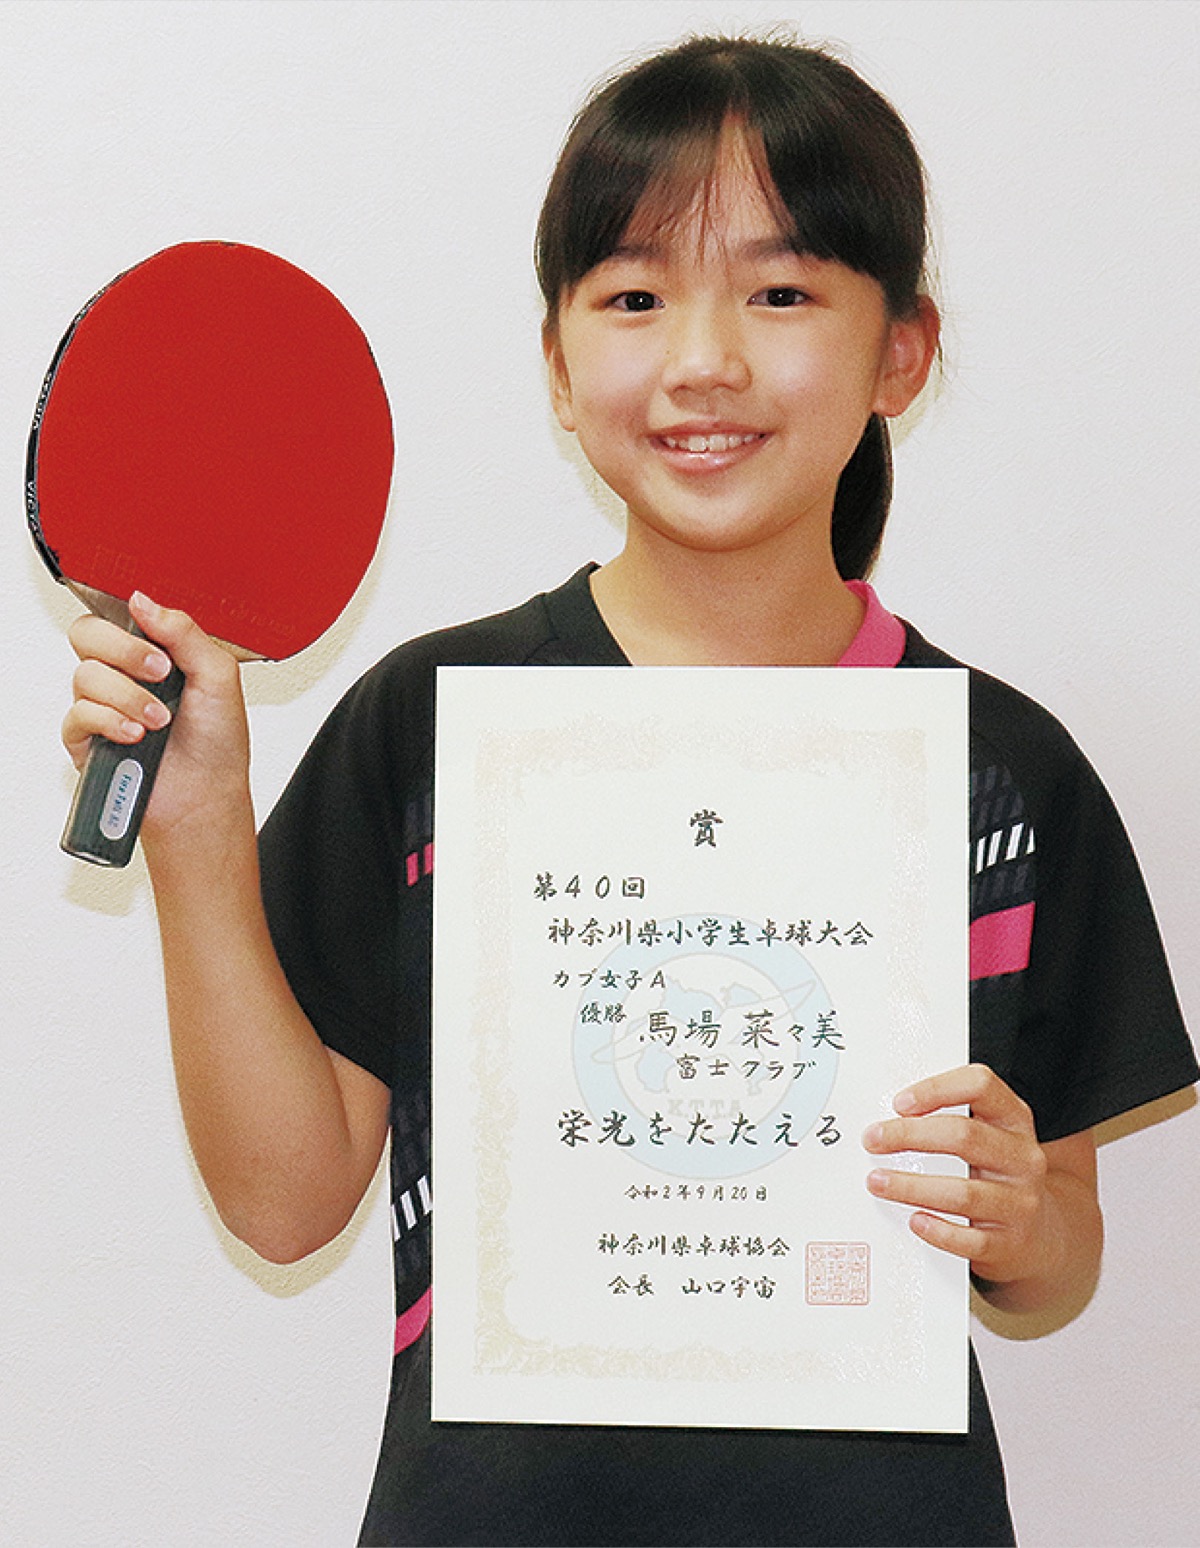 賞
第40回
神奈川県小学生卓球大会
カブ女子A
優勝 馬場 菜々美
富士クラブ
K.T.T.A
栄光をたたえる
令和2年9月20日
神奈川県卓球協会
会長 山口宇宙